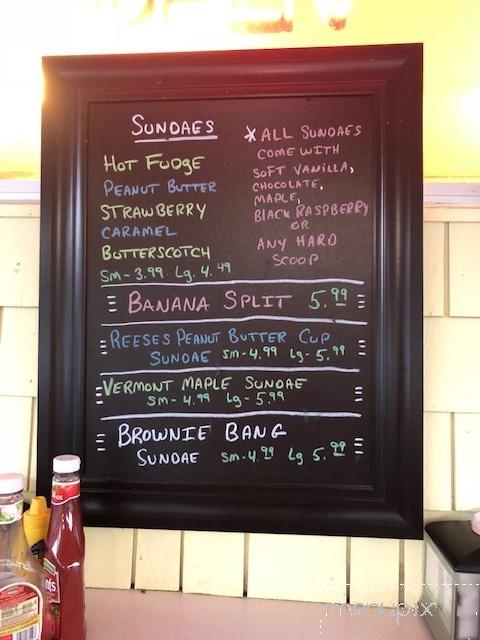 SUNDAES
HOT FUDGE
PEANUT BUTTER
STRAWBERRY
CARAMEL
BUTTERSCOTCH
Sm- 3.99 Lg. 4.49
* ALL SUNDAES
COME WITH
SOFT VANILLA,
CHOCOLATE,
MAPLE,
BLACK RASPBERRY
OR
ANY HARD
SCOOP
BANANA SPLIT 5.99
REESES PEANUT BUTTER CUP
SUNDAE Sm-4.99 Lg-5.99
VERMONT MAPLE SUNDAE
Sm- 4.99 Lg- 5.99
BROWNIE BANG
SUNDAE Sm-4.99 Lg 5.99
menupix